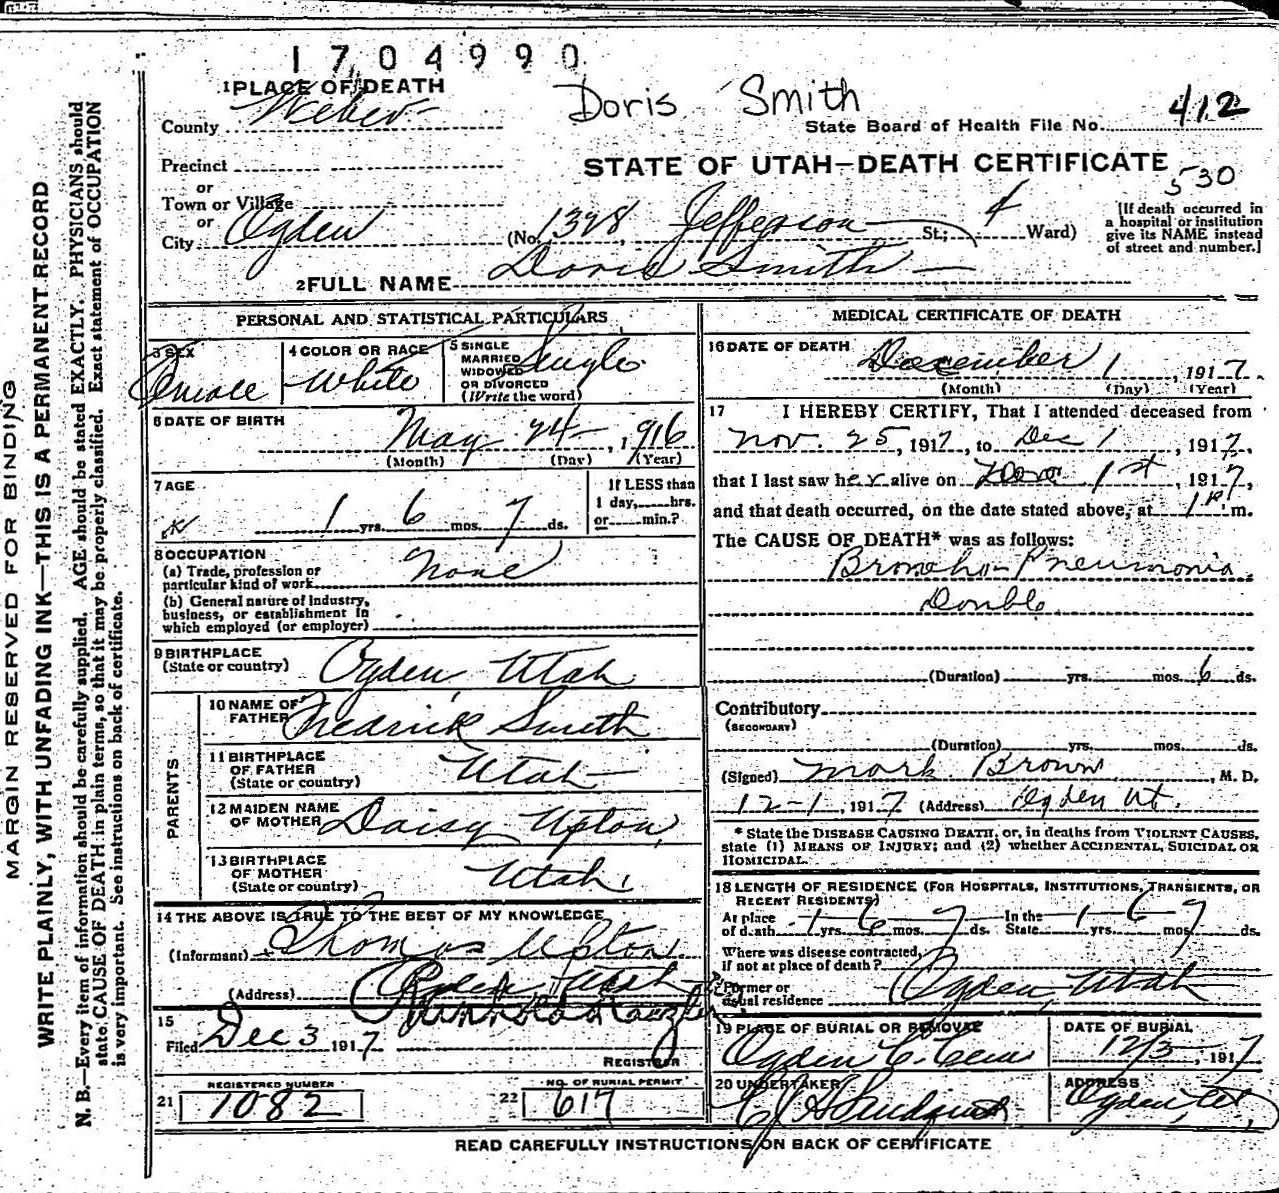 1704990
1 PLACE OF DEATH
Doris Smith
412
County Weber
State Board of Health File No.
Precinct
STATE OF UTAH—DEATH CERTIFICATE
530
or
Town or Village
or
City Ogden (No. 1398 Jefferson St.; 4 Ward)
[If death occurred in
a hospital or institution
give its NAME instead
of street and number.]
2 FULL NAME Doris Smith
PERSONAL AND STATISTICAL PARTICULARS
3 SEX
Female
4 COLOR OR RACE
White
5 SINGLE
MARRIED
WIDOWED
OR DIVORCED
(Write the word)
Single
6 DATE OF BIRTH
May 24, 1916
(Month) (Day) (Year)
7 AGE
1 yrs. 6 mos. 7 ds.
If LESS than
1 day, hrs.
or min.?
8 OCCUPATION
(a) Trade, profession or
particular kind of work None
(b) General nature of industry,
business, or establishment in
which employed (or employer)
9 BIRTHPLACE
(State or country) Ogden Utah
PARENTS
10 NAME OF
FATHER Fredrick Smith
11 BIRTHPLACE
OF FATHER
(State or country) Utah
12 MAIDEN NAME
OF MOTHER Daisy Upton
13 BIRTHPLACE
OF MOTHER
(State or country) Utah
14 THE ABOVE IS TRUE TO THE BEST OF MY KNOWLEDGE
(Informant) Thomas Upton
(Address) Ogden Utah
15
Filed Dec 3 1917
REGISTRAR
21 REGISTERED NUMBER
1082
22 NO. OF BURIAL PERMIT
617
MEDICAL CERTIFICATE OF DEATH
16 DATE OF DEATH
December 1, 1917
(Month) (Day) (Year)
17 I HEREBY CERTIFY, That I attended deceased from
Nov. 25, 1917, to Dec 1, 1917,
that I last saw her alive on 1st, 1917,
and that death occurred, on the date stated above, at 1 P. m.
The CAUSE OF DEATH* was as follows:
Broncho-Pneumonia
Double
(Duration) yrs. mos. 6 ds.
Contributory
(SECONDARY)
(Duration) yrs. mos. ds.
(Signed) Mark Brown, M. D.
12-1, 1917 (Address) Ogden Ut.
* State the DISEASE CAUSING DEATH, or, in deaths from VIOLENT CAUSES,
state (1) MEANS OF INJURY; and (2) whether ACCIDENTAL, SUICIDAL OR
HOMICIDAL.
18 LENGTH OF RESIDENCE (FOR HOSPITALS, INSTITUTIONS, TRANSIENTS, OR
RECENT RESIDENTS)
At place
of death 1 yrs. 6 mos. 7 ds. In the
State 1 yrs. 6 mos. 7 ds.
Where was disease contracted,
if not at place of death?
Former or
usual residence Ogden, Utah
19 PLACE OF BURIAL OR REMOVAL
Ogden C. Cem
DATE OF BURIAL
12/3, 1917
20 UNDERTAKER
ADDRESS
Ogden, Ut,
READ CAREFULLY INSTRUCTIONS ON BACK OF CERTIFICATE
MARGIN RESERVED FOR BINDING
WRITE PLAINLY, WITH UNFADING INK—THIS IS A PERMANENT RECORD
N. B.—Every item of information should be carefully supplied. AGE should be stated EXACTLY. PHYSICIANS should
state CAUSE OF DEATH in plain terms, so that it may be properly classified. Exact statement of OCCUPATION
is very important. See instructions on back of certificate.